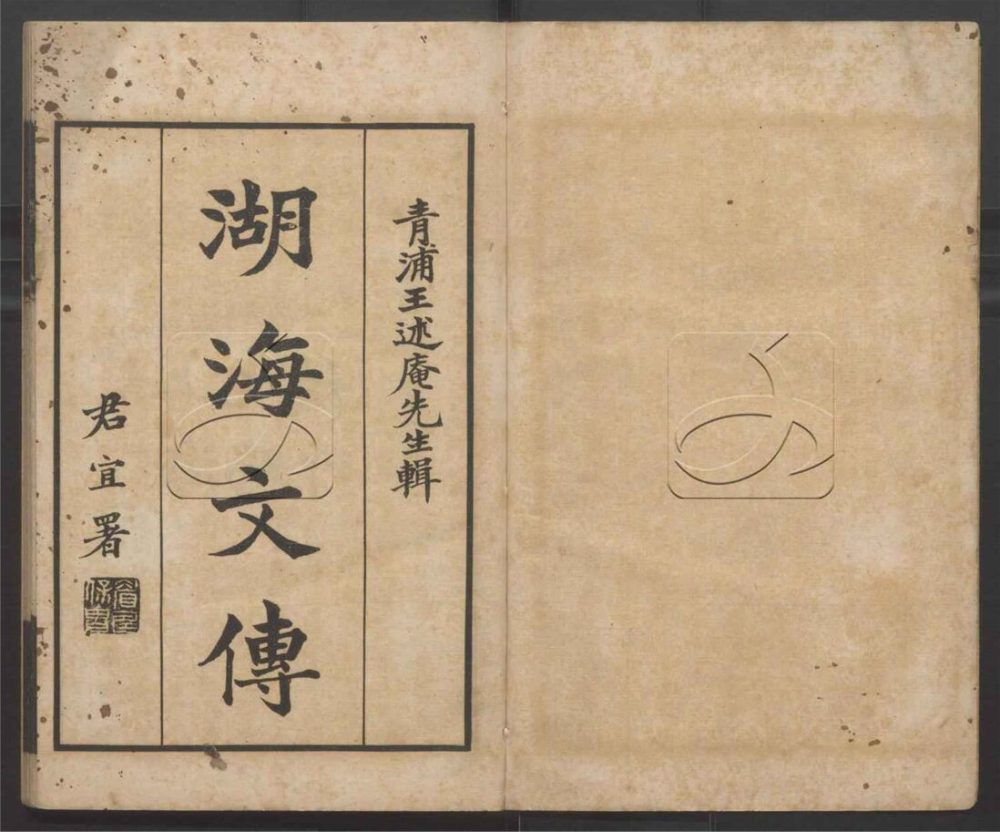 青浦王述庵先生輯
湖海文傳
君宜署